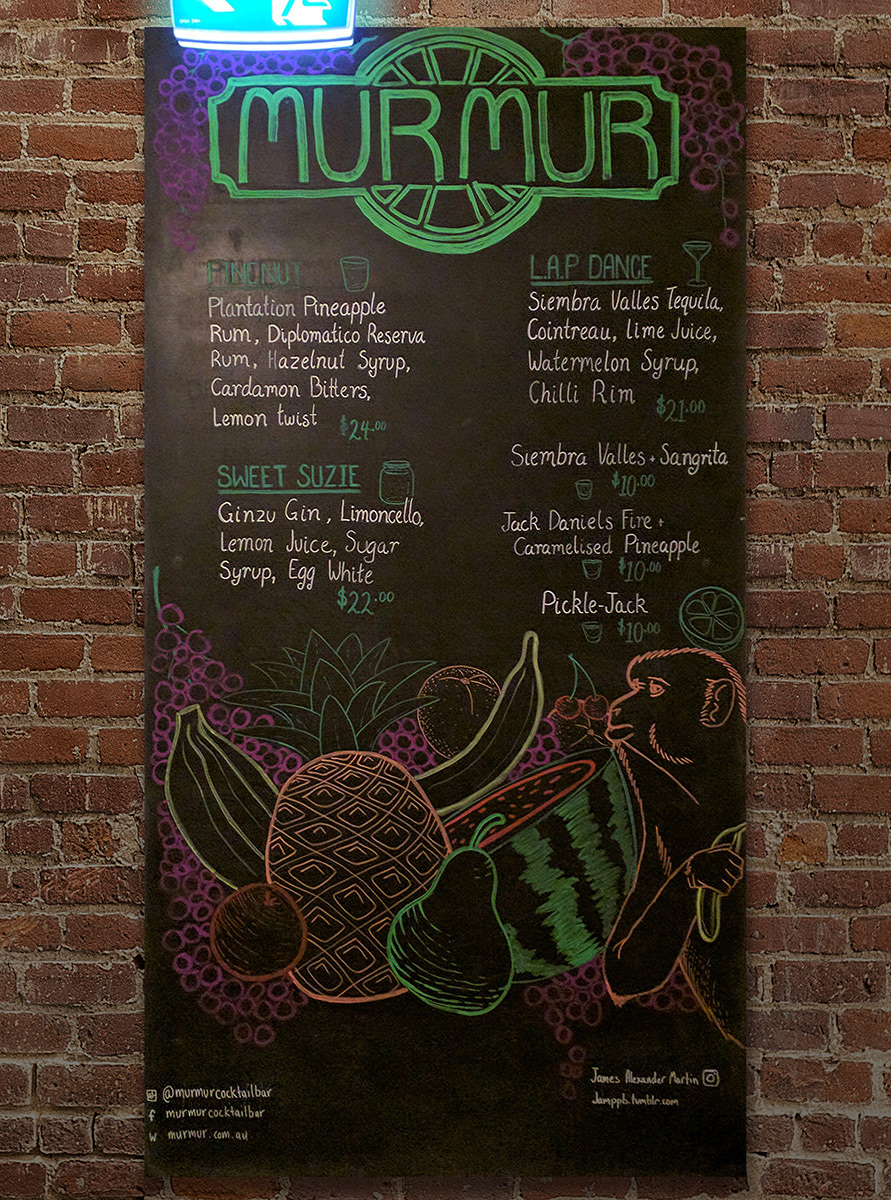 MURMUR
PINONUT
Plantation Pineapple
Rum, Diplomatico Reserva
Rum, Hazelnut Syrup,
Cardamon Bitters,
Lemon twist
$24.00
SWEET SUZIE
Ginzu Gin, Limoncello,
Lemon Juice, Sugar
Syrup, Egg White
$22.00
L.A.P DANCE
Siembra Valles Tequila,
Cointreau, lime Juice,
Watermelon Syrup,
Chilli Rim
$21.00
Siembra Valles + Sangrita
$10.00
Jack Daniels Fire +
Caramelised Pineapple
$10.00
Pickle-Jack
$10.00
@murmurcocktailbar
f murmurcocktailbar
w murmur.com.au
James Alexander Martin
Jamppb.tumblr.com